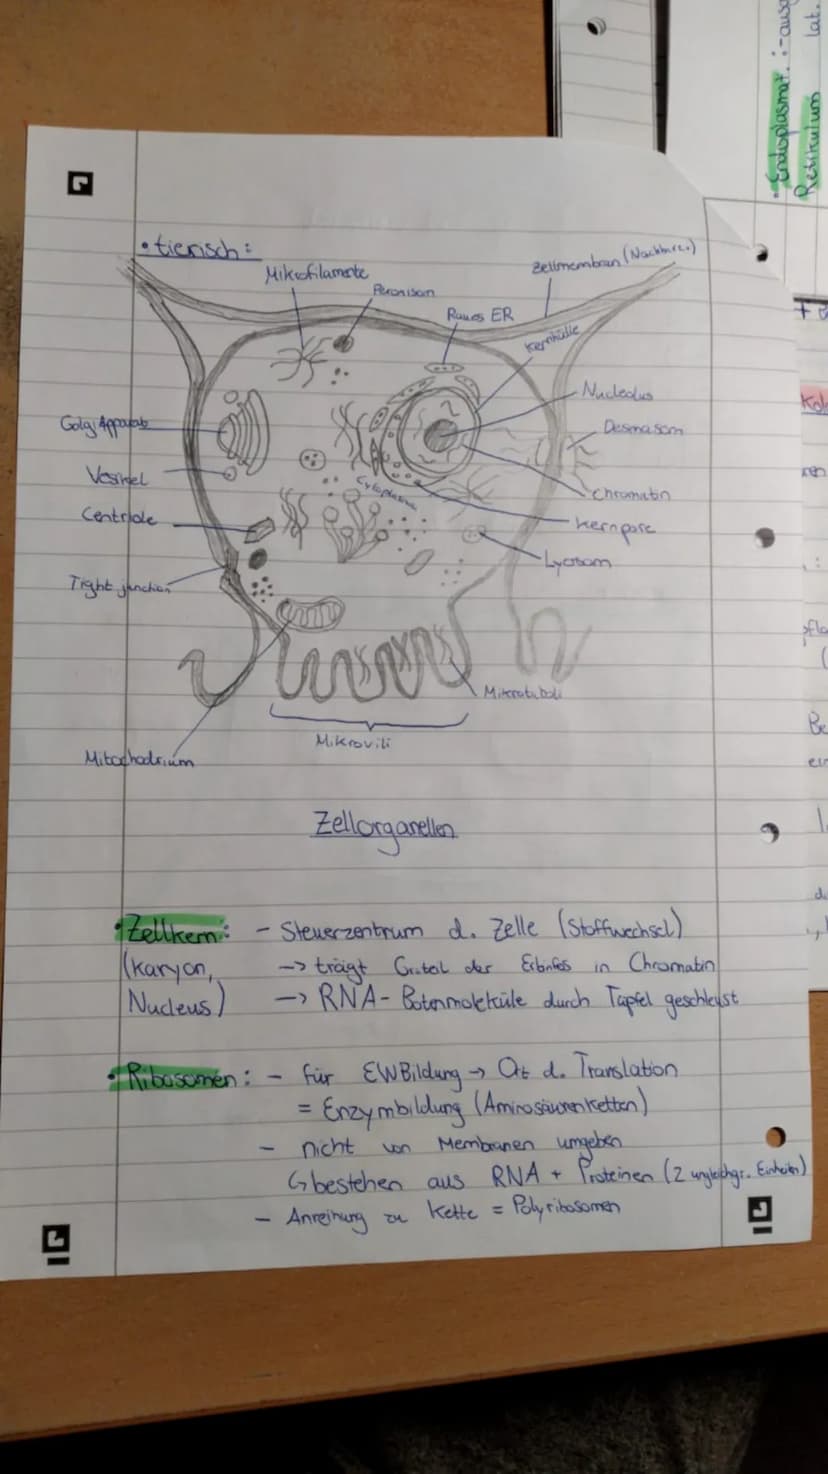 • tierisch:
Mikrofilamente
Peroxisom
Zellmembran (Nachbarz.)
Raues ER
Kernhülle
Nucleolus
Golgi Apparat
Desmosom
Vesikel
Cytoplasma
Chromatin
Centriole
Kernpore
Lysosom
Tight junction
Mikrotubuli
Mikrovili
Mitochodrium
Zellorganellen
• Zellkern: - Steuerzentrum d. Zelle (Stoffwechsel)
(Karyon, -> trägt Gr.teil der Erbinfos in Chromatin
Nucleus) -> RNA-Botenmoleküle durch Tüpfel geschleust
• Ribosomen: - für EWBildung -> Ort d. Translation
= Enzymbildung (Aminosäurenketten)
- nicht von Membranen umgeben
bestehen aus RNA + Proteinen (2 ungleichgr. Einheiten)
- Anreihung zu Kette = Polyribosomen
• Endoplasmat. :-
Retikulum lat.